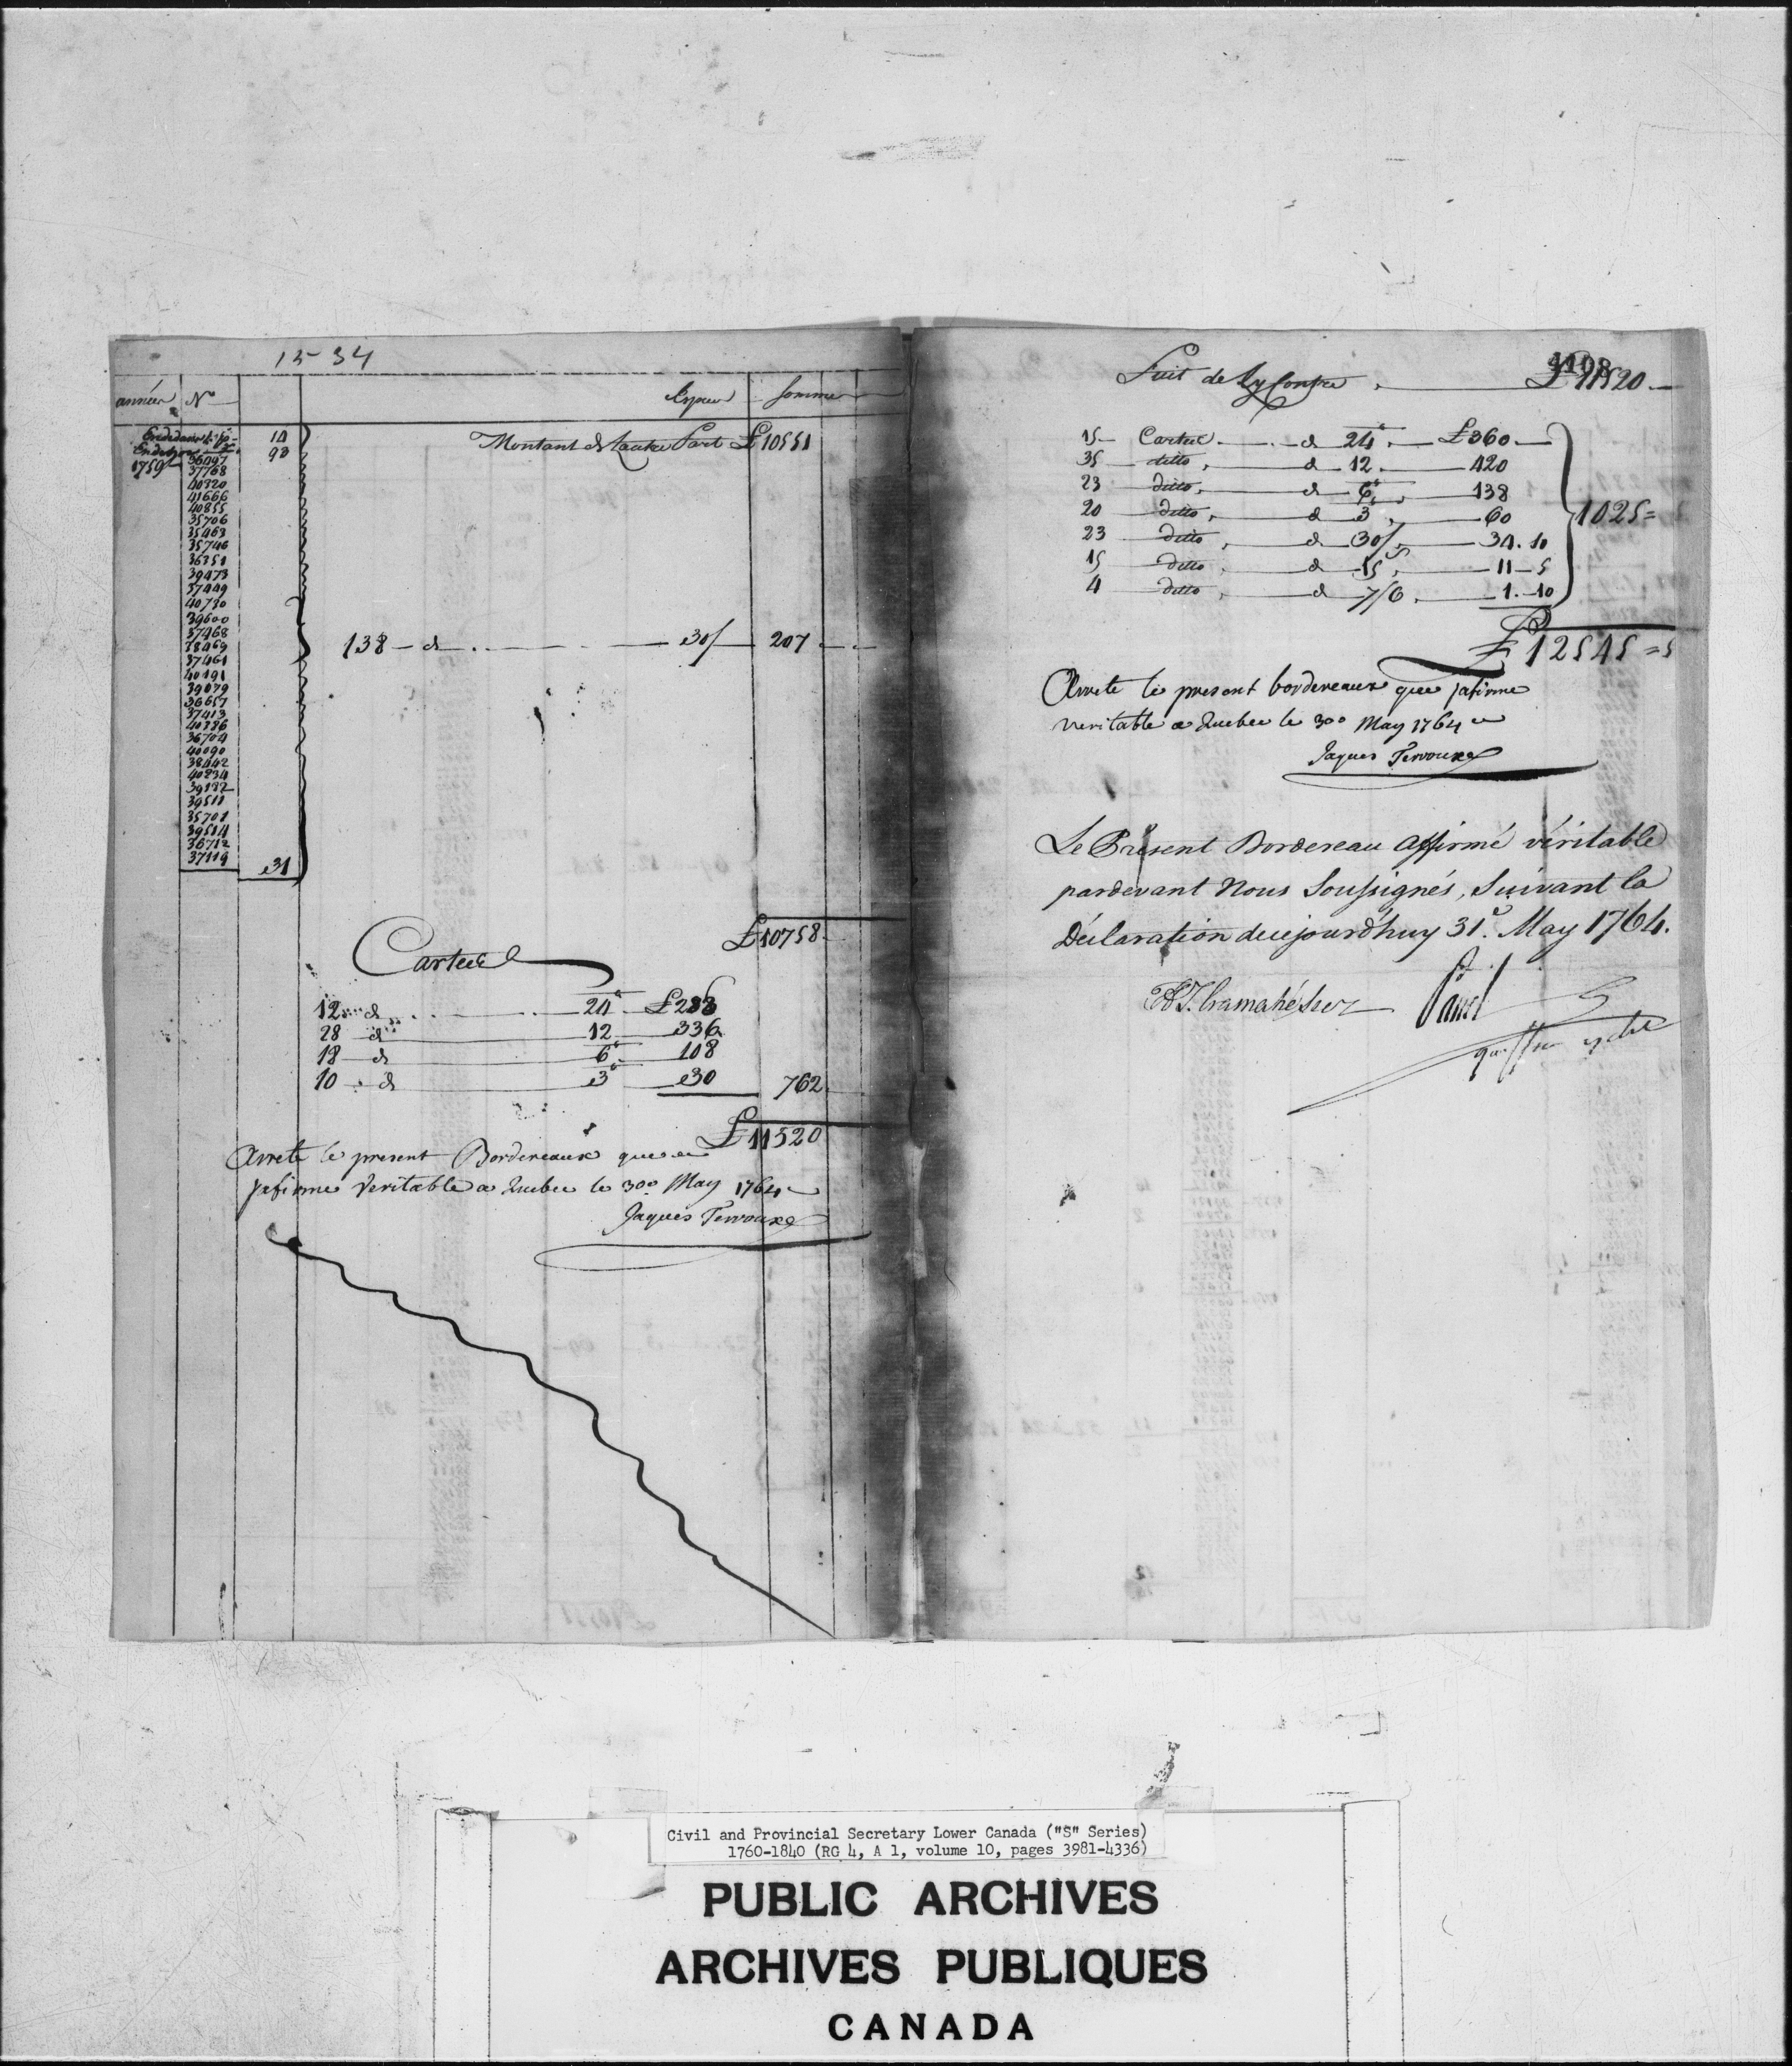 15-34
années N° Especes Sommes
14
93
Montant de Lautre Part £ 10551
1759
36097
37768
40320
41666
40855
35706
35463
35746
36351
39473
37449
40730
39600
37468
38469
37461
40191
39079
36657
37413
40386
36704
40090
38442
40834
39182
39511
35701
39514
36712
37119
31
138 - d 30/ 207
£ 10758
Carteul
12 d 24 £ 288
28 d 12 336
18 d 6 108
10 d 3 30 762
£ 11520
Arrete le present Bordereaux que
jafirme Veritable a Quebec le 30° May 1764
Jaques Terroux
4108
Suit de Ly Contre £ 11520
15 Carteul d 24 £ 360
35 ditto d 12 420
23 ditto d 6 138
20 ditto d 3 60
23 ditto d 30/ 34.10
15 ditto d 15 11-5
4 ditto d 7/6 1.-10
1025=5
£ 12545=5
Arrete le present bordereaux que jafirme
veritable a Quebec le 30° May 1764
Jaques Terroux
Le Présent Bordereau affirmé véritable
pardevant Nous Soussignés, Suivant la
Déclaration decejourd'huy 31.e May 1764.
H.T. Cramahé Panet
Civil and Provincial Secretary Lower Canada ("S" Series)
1760-1840 (RG 4, A 1, volume 10, pages 3981-4336)
PUBLIC ARCHIVES
ARCHIVES PUBLIQUES
CANADA